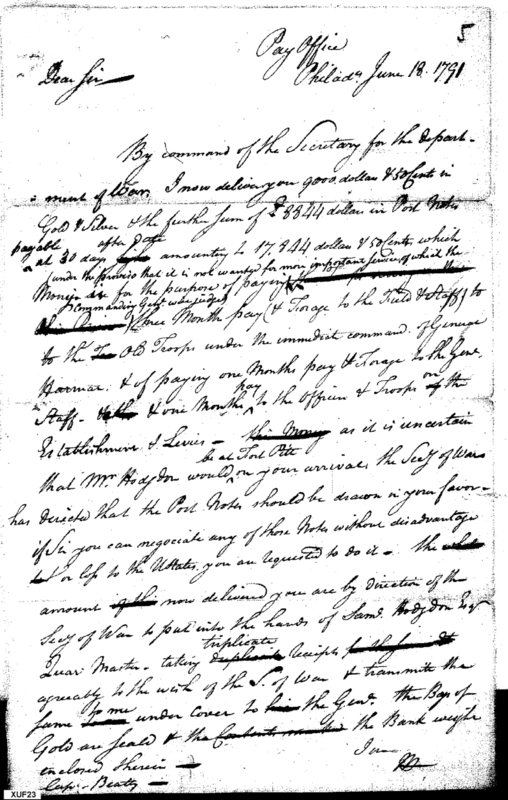 5
Pay Office
Philada June 18. 1791
Dear Sir
By command of the Secretary for the depart-
ment of War, I now deliver you 9000 dollars & 50 Cents in
Gold & Silver & the further sum of 8844 dollars in Post Notes
payable after date
at 30 days amounting to 17,844 dollars & 50 Cents, which
(under the proviso that it is not wanted for more important services, of which the
Monies are for the purpose of paying
Commanding Genl. will judge)
three Months pay (& Forage to the Field & Staff) to
to the Old Troops under the immediate command of General
Harmar. & of paying one Months pay & Forage to the Genl.
Staff - & one Months pay to the Officers & Troops on the
Establishment & Levies - this Money as it is uncertain
be at Fort Pitt
that Mr Hodgdon would on your arrival, the Secy of War
has directed that the Post Notes should be drawn in your favor -
if Sir you can negociate any of those Notes without disadvantage
or loss to the UStates, you are requested to do it - the whole
amount of this now delivered you are by direction of the
Secy of War to put into the hands of Saml. Hodgdon Esqr
triplicate
Quar Master - taking duplicate receipts
agreeably to the wish of the S. of War & transmitt the
same to me under cover to him the Genl. the Bags of
Gold are seald & the Contents the Bank weight
enclosed therein - I am
Cap. Beatty
XUF23